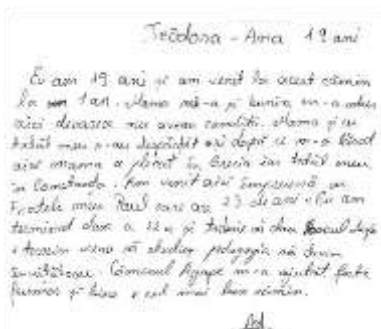 Teodora - Ana 19 ani
Eu am 19 ani și am venit la acest cămin
la un 1 an. Mama mă-a și bunica m-a adus
aici deoarece nu aveau condiții. Mama și cu
tatăl meu s-au despărțit ani după ce m-a lăsat
aici mama a plecat în Grecia iar tatăl meu
în Constanța. Am venit aici împreună cu
Fratele meu Paul care are 23 de ani. Eu am
terminat clasa a 12 a și trebuie să dau Bacul după
aceasta vreau să studiez pedagogia să devin
învățătoare. Căminul Agape m-a ajutat foarte
frumos și bine e cel mai bun cămin.